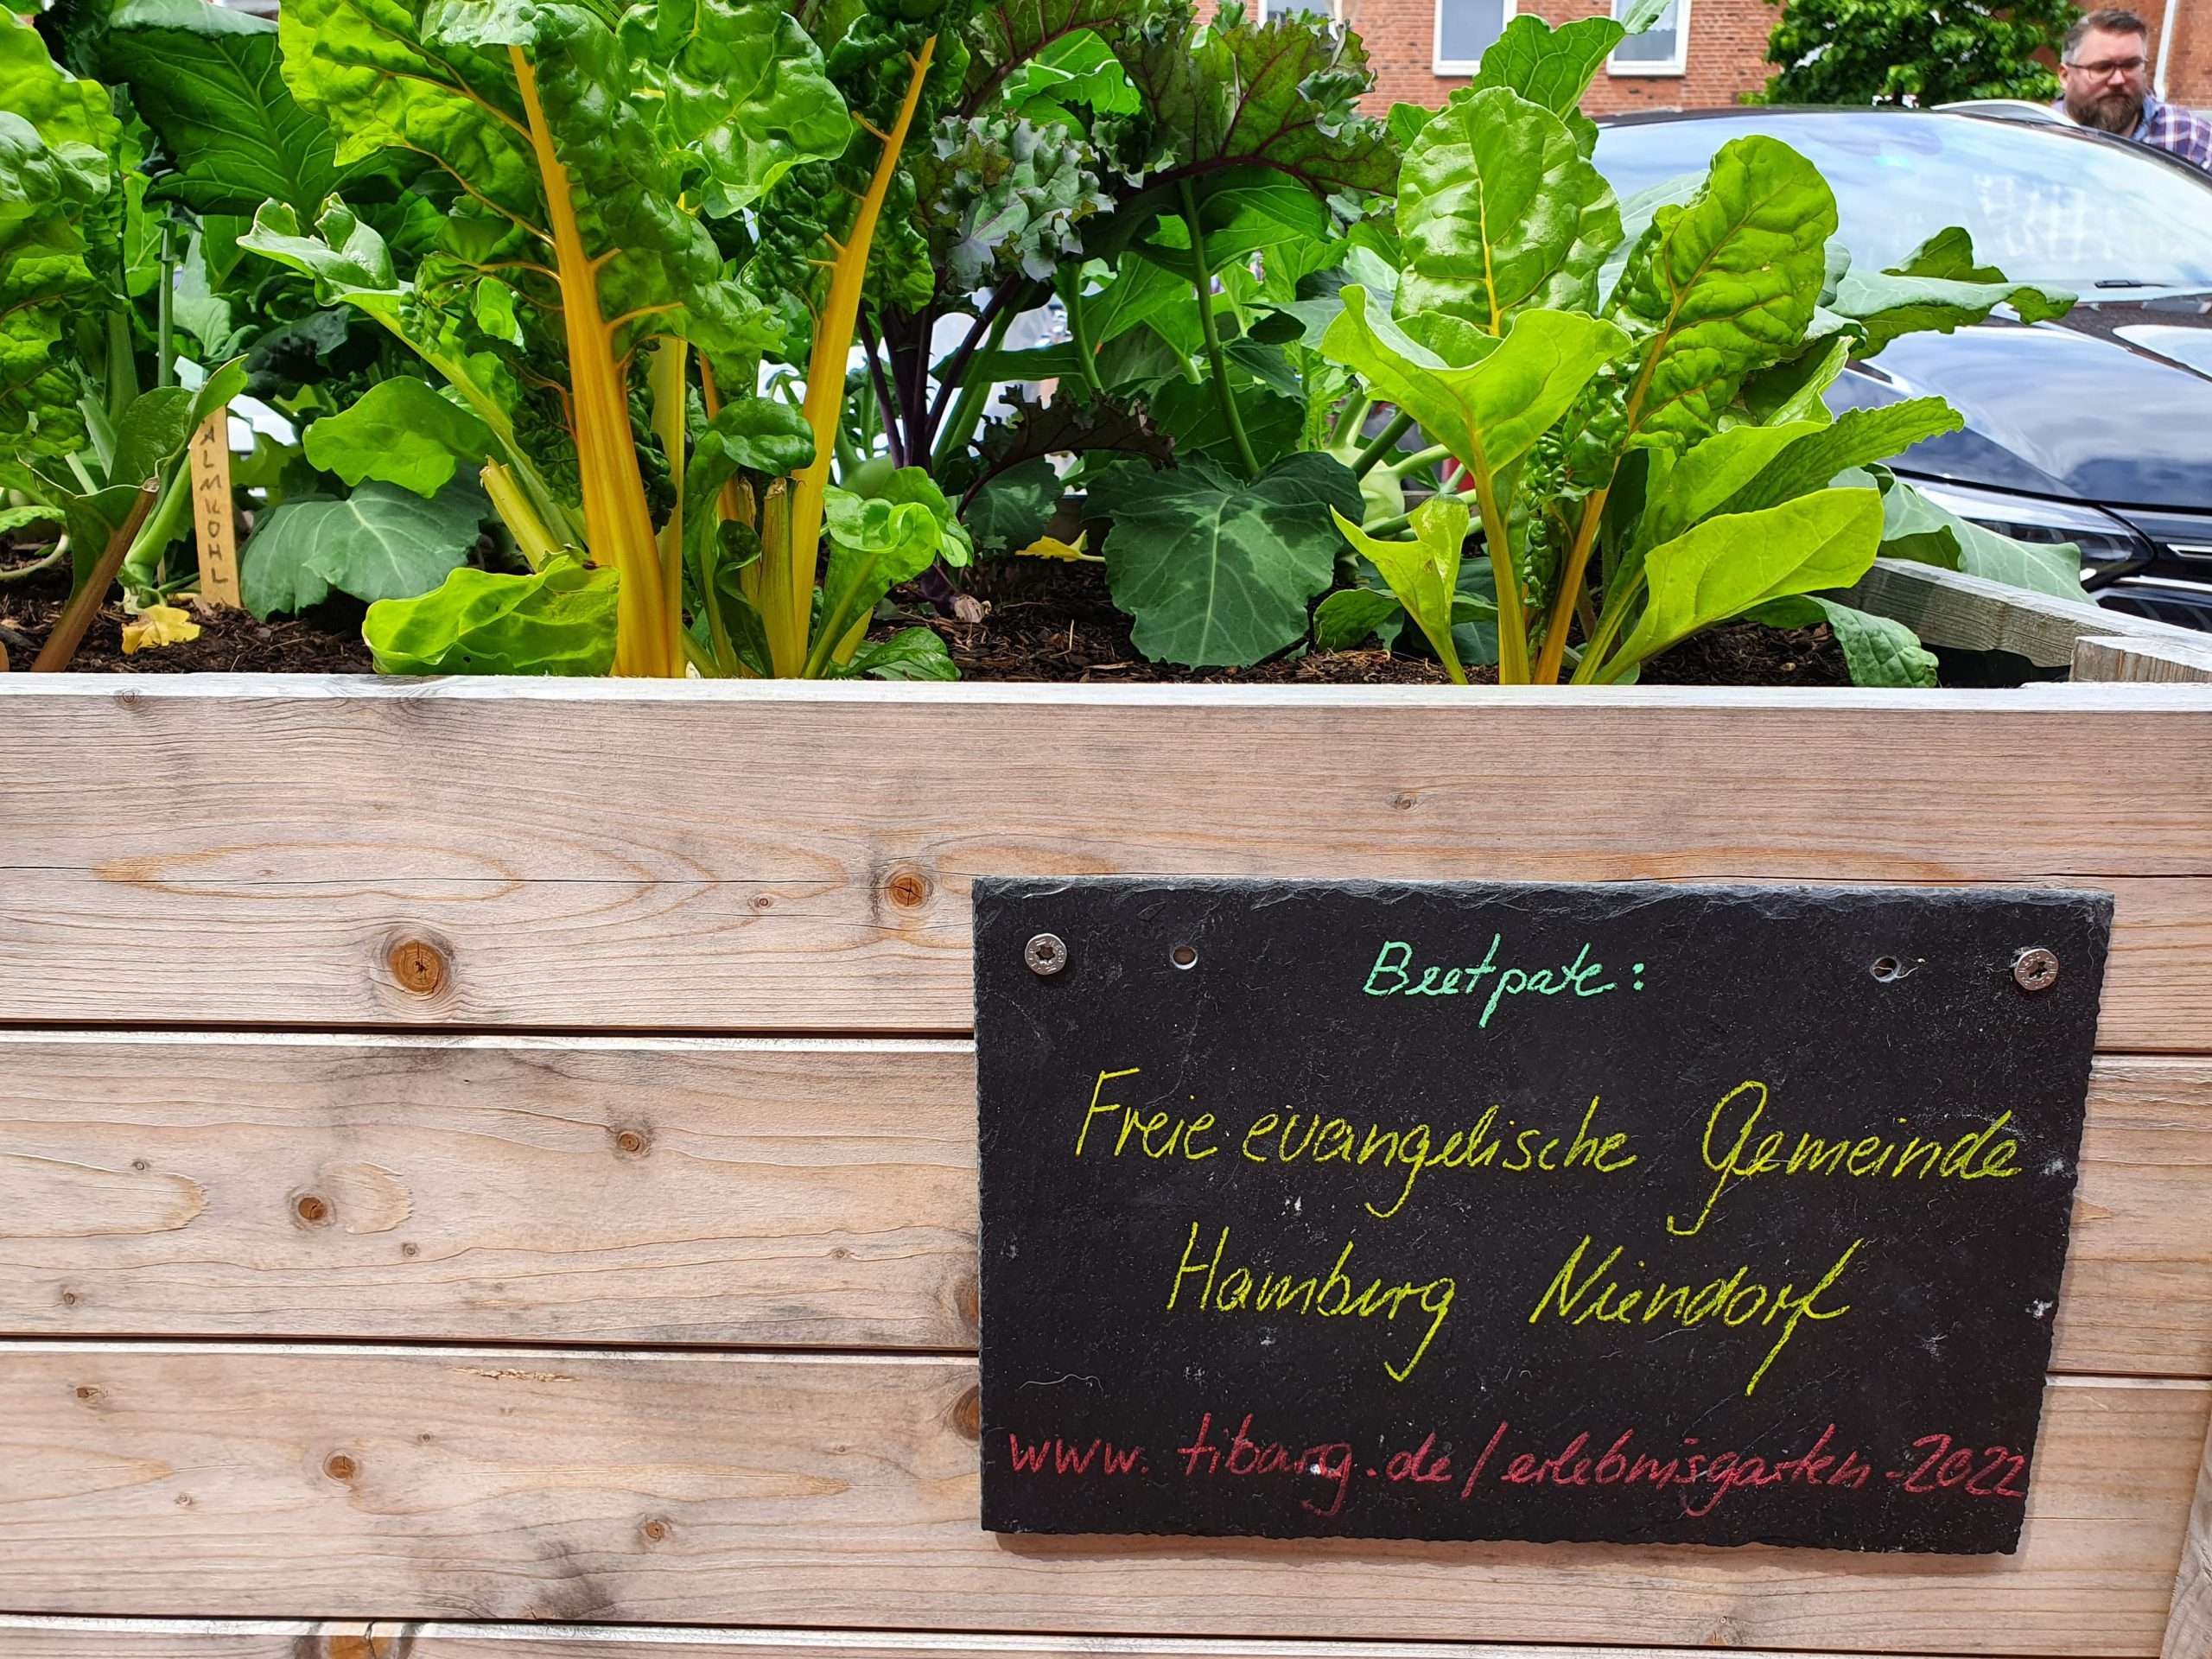 ALMKOHL
Beetpate:
Freie evangelische Gemeinde
Hamburg Niendorf
www.tibarg.de/erlebnisgarten-2022